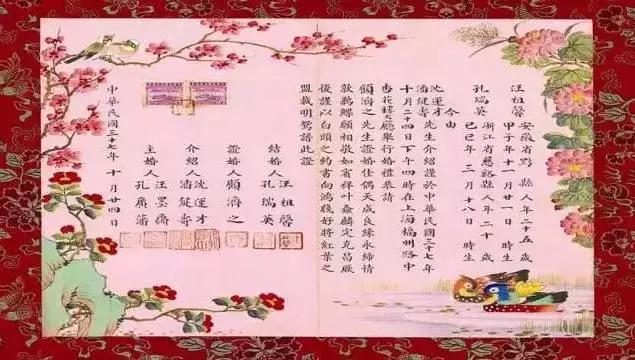 汪祖馨 安徽省黟縣人年二十五歲
甲子年十一月廿一日 時生
孔瑞英 浙江省慈谿縣人年二十歲
己巳年二月十八日 時生
今由
沈運才
潘健壽先生介紹謹於中華民國三十七年
十月二十四日下午四時在上海福州路中
杏花樓大廳舉行婚禮恭請
顧濟之先生證婚佳偶天成良緣永締情
敦鶼鰈願相敬如賓祥叶螽麟定克昌厥
後謹以白頭之約書向鴻箋好將紅葉之
盟載明鴛譜此證
結婚人 汪祖馨
孔瑞英
證婚人 顧濟之
介紹人 沈運才
潘健壽
主婚人 汪墨
孔廣藩
中華民國三十七年十月廿四日